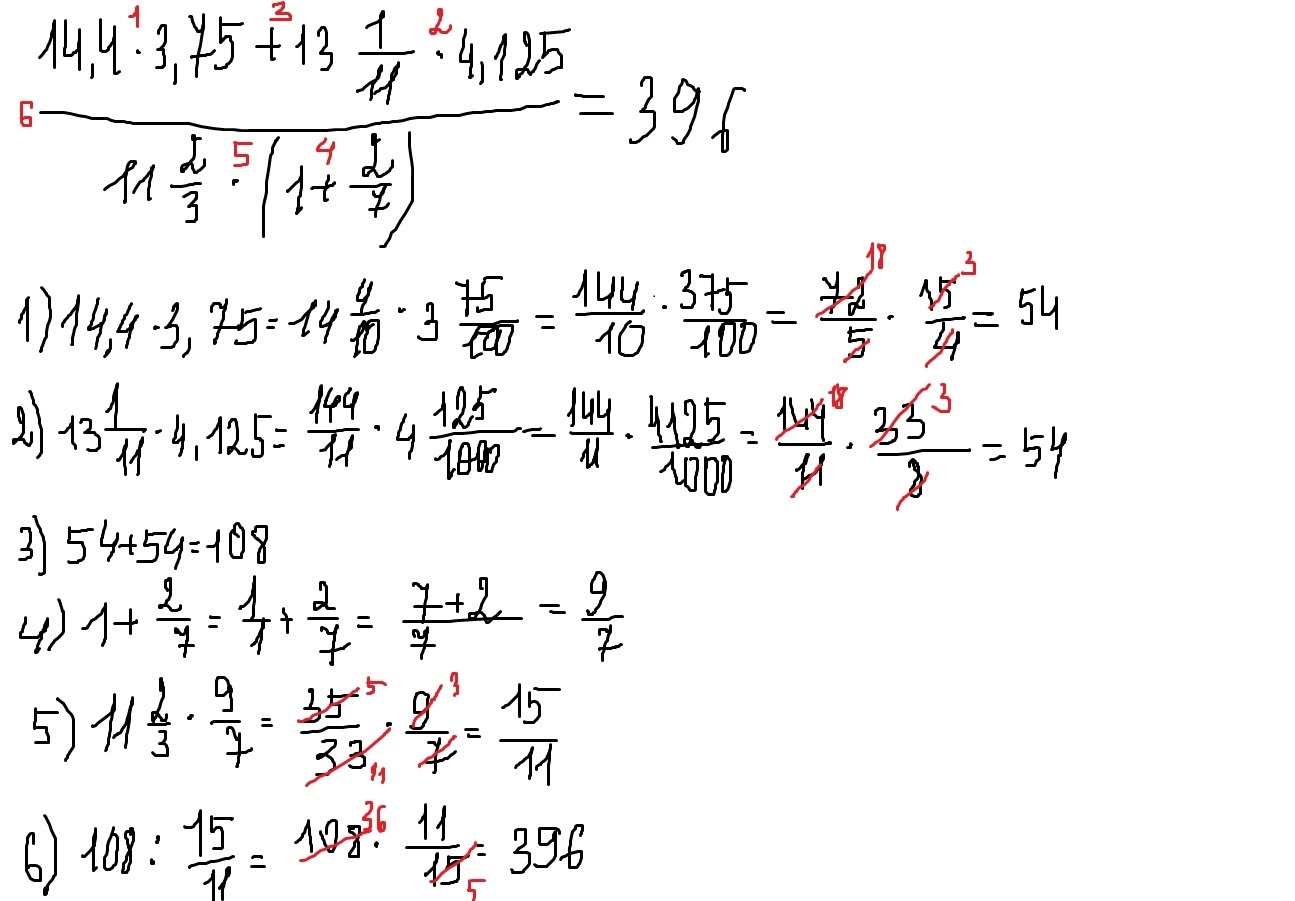 14,4 · 3,75 + 13 1/11 · 4,125 = 396
11 2/3 · (1 + 2/7)
1 3 2
6
5 4
1) 14,4 · 3,75 = 14 4/10 · 3 75/100 = 144/10 · 375/100 = 72/5 · 15/4 = 54
18 3
2) 13 1/11 · 4,125 = 144/11 · 4 125/1000 = 144/11 · 4125/1000 = 144/11 · 33/8 = 54
18 3
3) 54+54=108
4) 1 + 2/7 = 1/1 + 2/7 = 7+2/7 = 9/7
5) 11 2/3 · 9/7 = 35/33 · 9/7 = 15/11
5 3
11
6) 108 : 15/11 = 108 · 11/15 = 396
36
5